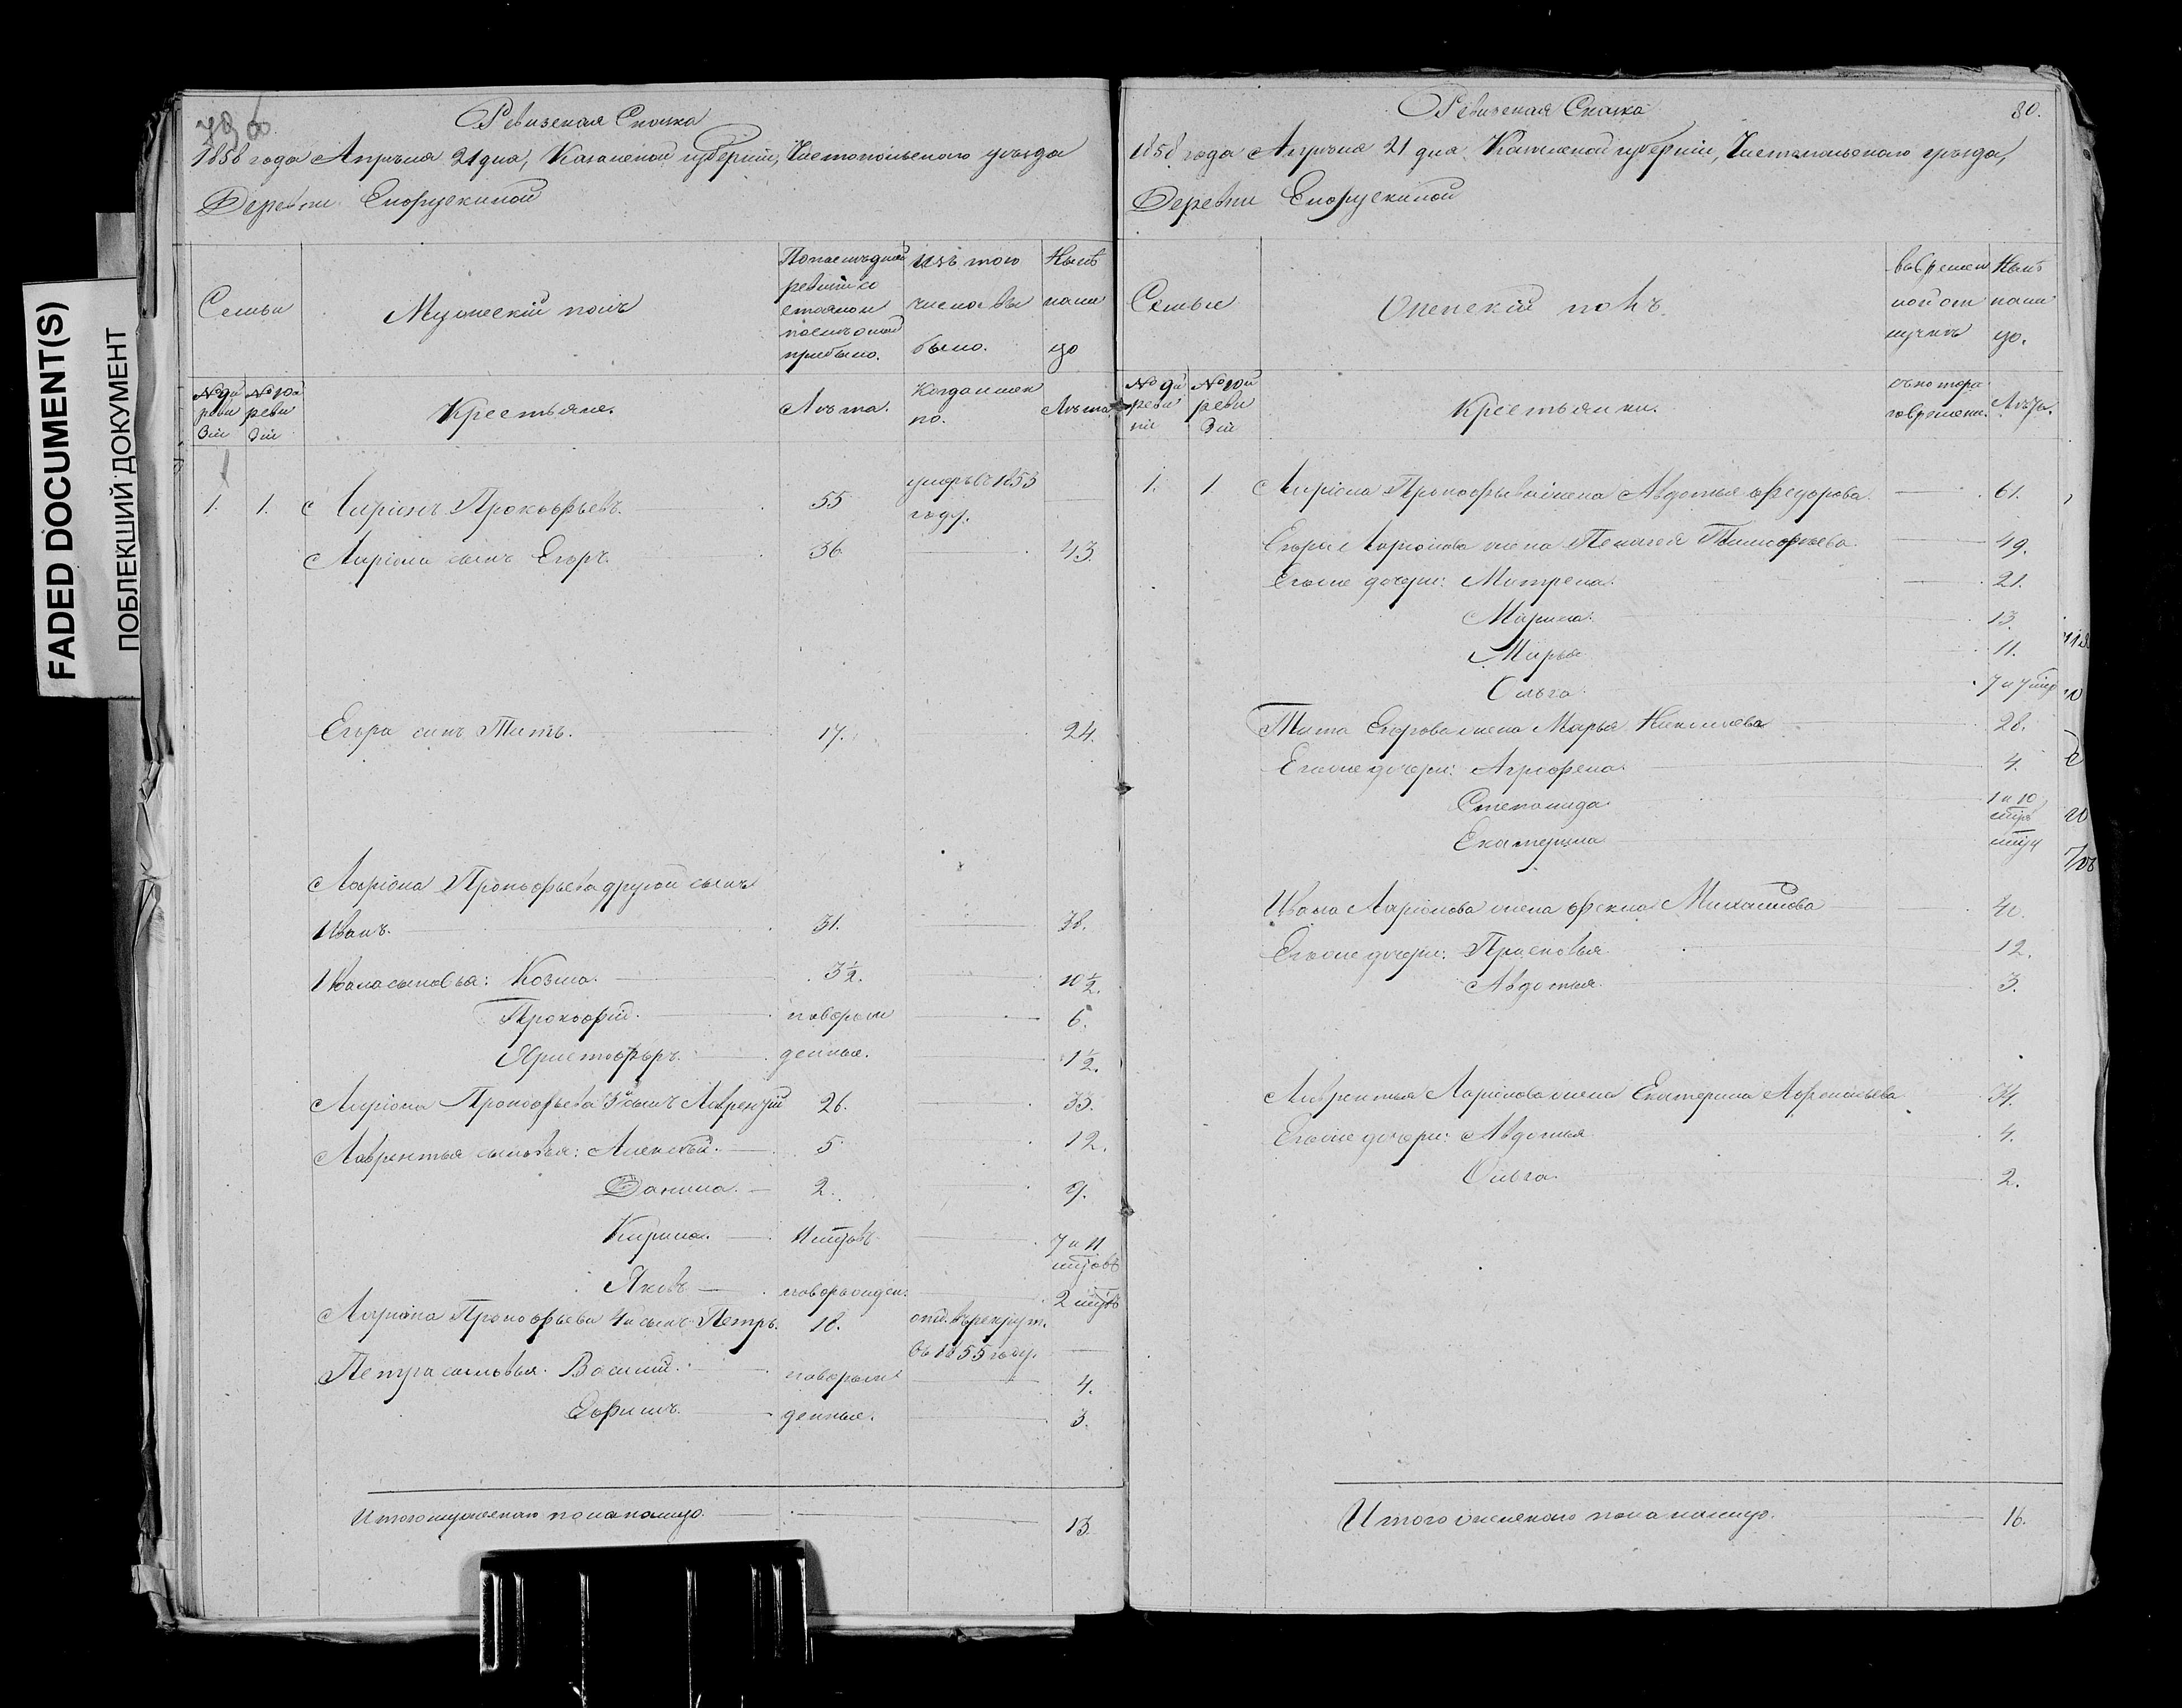 FADED DOCUMENT(S)
ПОБЛЕКШИЙ ДОКУМЕНТ
Ревизская Сказка
1858 года Апрѣля 21 дня, Казанской губерніи, Чистопольскаго уѣзда
Деревни Епорускиной
Семьи
Мужескій полъ
По послѣдней
ревизіи со
стояло и
послѣ оной
прибыло.
Изъ того
числа вы
было.
Нынѣ
нали
цо
№ 9й
реви
зіи
№ 10й
реви
зіи
Крестьяне.
Лѣта.
Когда имен
но.
Лѣта
1. 1. Ларіонъ Прокофьевъ. 55 умеръ въ 1853
году.
Ларіона сынъ Егоръ. 36 43.
Егора сынъ Титъ. 17. 24.
Ларіона Прокофьева другой сынъ
Иванъ. 31. 38.
Ивана сыновья: Козма. 3½. 10½.
Прокофій. новорож 6.
Христофоръ. денные. 1½.
Ларіона Прокофьева 3й сынъ Лаврентій 26. 33.
Лаврентья сыновья: Алексѣй. 5 12.
Данила. 2. 9.
Кирила. 11 мѣсцовъ 7 и 11
мѣсцовъ
Яковъ новорожден: 2 мѣсцъ
Ларіона Прокофьева 4й сынъ Петръ. 18. отд. въ рекрут.
въ 1855 году.
Петра сыновья: Василий. новорож 4.
Ефимъ. денные. 3.
Итого мужескаго пола налицо. 13.
Ревизская Сказка
80.
1858 года Апрѣля 21 дня, Казанской губерніи, Чистопольскаго уѣзда,
Деревни Епорускиной
Семьи
Женскій полъ.
во времен
ной от
лучкѣ
Нынѣ
нали
цо.
№ 9й
реви
зіи
№ 10й
реви
зіи
Крестьянки.
съ котора
го времени.
Лѣта.
1. 1 Ларіона Прокофьева жена Авдотья Федорова. 61.
Егора Ларіонова жена Пелагея Тимофѣева. 49.
Егоже дочери: Матрена. 21.
Марина. 13.
Марья 11.
Ольга. 7 и 7 мѣсц
Тита Егорова жена Марья Николаева 28.
Егоже дочери: Аграфена. 4.
Степанида. 1 и 10
мѣсц
Екатерина
Ивана Ларіонова жена Фекла Михайлова 40.
Егоже дочери: Прасковья. 12.
Авдотья. 3.
Лаврентья Ларіонова жена Екатерина Афанасьева. 34.
Егоже дочери: Авдотья 4.
Ольга. 2.
Итого женскаго пола налицо. 16.